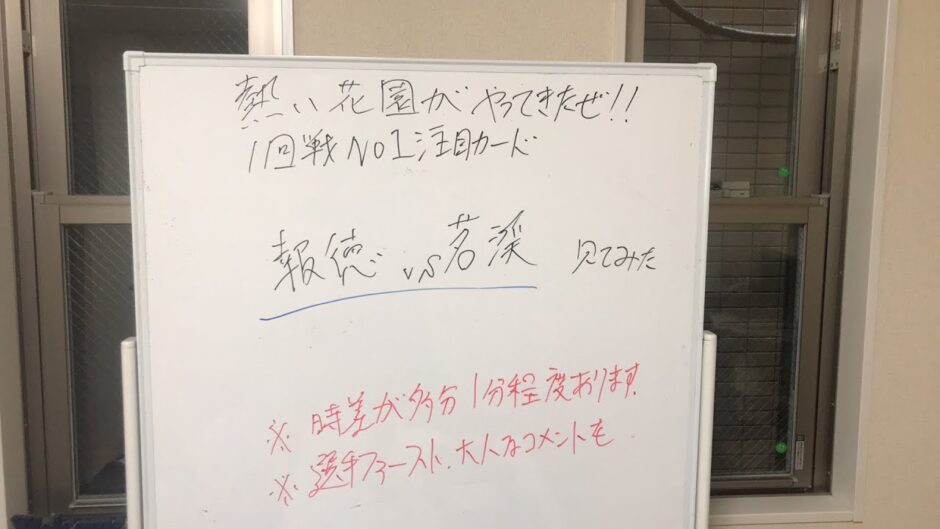 熱い花園がやってきたぜ!!
1回戦NO1注目カード
報徳 vs 茗渓 見てみた
※ 時差が多分1分程度おります.
※ 選手ファースト.大人なコメントを